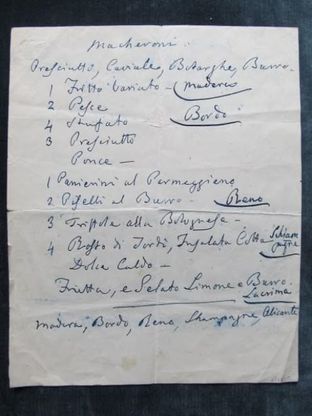 Macheroni.
Presciutto, Caviale, Botarghe, Burro.
1 Fritto Variato — Madera
2 Pesce
4 Stufato Bordò
3 Presciutto
Ponce —
1 Panierini al Parmeggieno
2 Piselli al Burro — Reno
3 alla Bolognese —
4 Rosto di Tordi, Insalata Cotta Schampagne
Dolce Caldo —
Frutta, e Gelato Limone e Burro
Lacrima
Madera, Bordo, Reno, Shampagne, Alicante